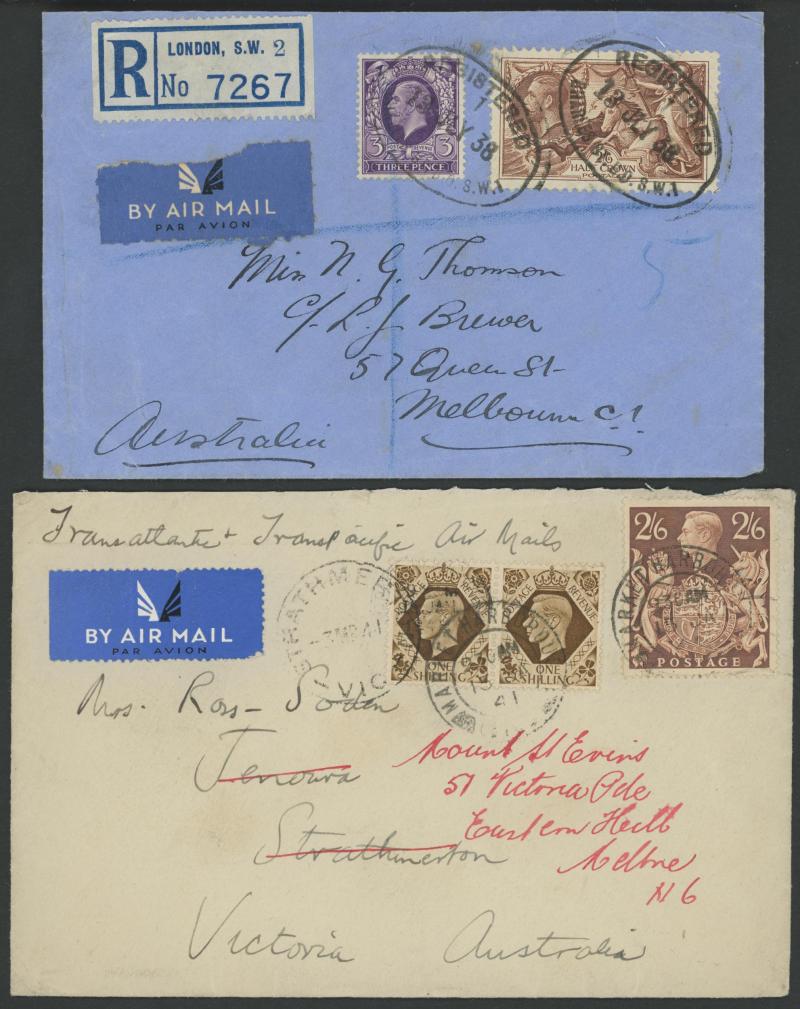 R
LONDON, S.W. 2
No 7267
BY AIR MAIL
PAR AVION
3 3
POSTAGE REVENUE
THREE PENCE
REGISTERED
1
13 JLY 38
S.W.1
HALF CROWN
REGISTERED
1
13 JLY 38
S.W.1
Miss N. G. Thomson
C/- L. J. Brewer
57 Queen St
Melbourne C1
Australia
Transatlantic & Transpacific Air Mails
BY AIR MAIL
PAR AVION
STRATHMER
41
VIC
REVENUE
ONE SHILLING
POSTAGE REVENUE
ONE SHILLING
MARKET HARBOROUGH
AM
41
2/6 2/6
MARKET HARBO
AM
POSTAGE
Mrs. Ross-Soden
Tenowra
Strathmerton
Victoria Australia
Mount St Evins
51 Victoria Pde
Eastern Hill
Melbne
N6